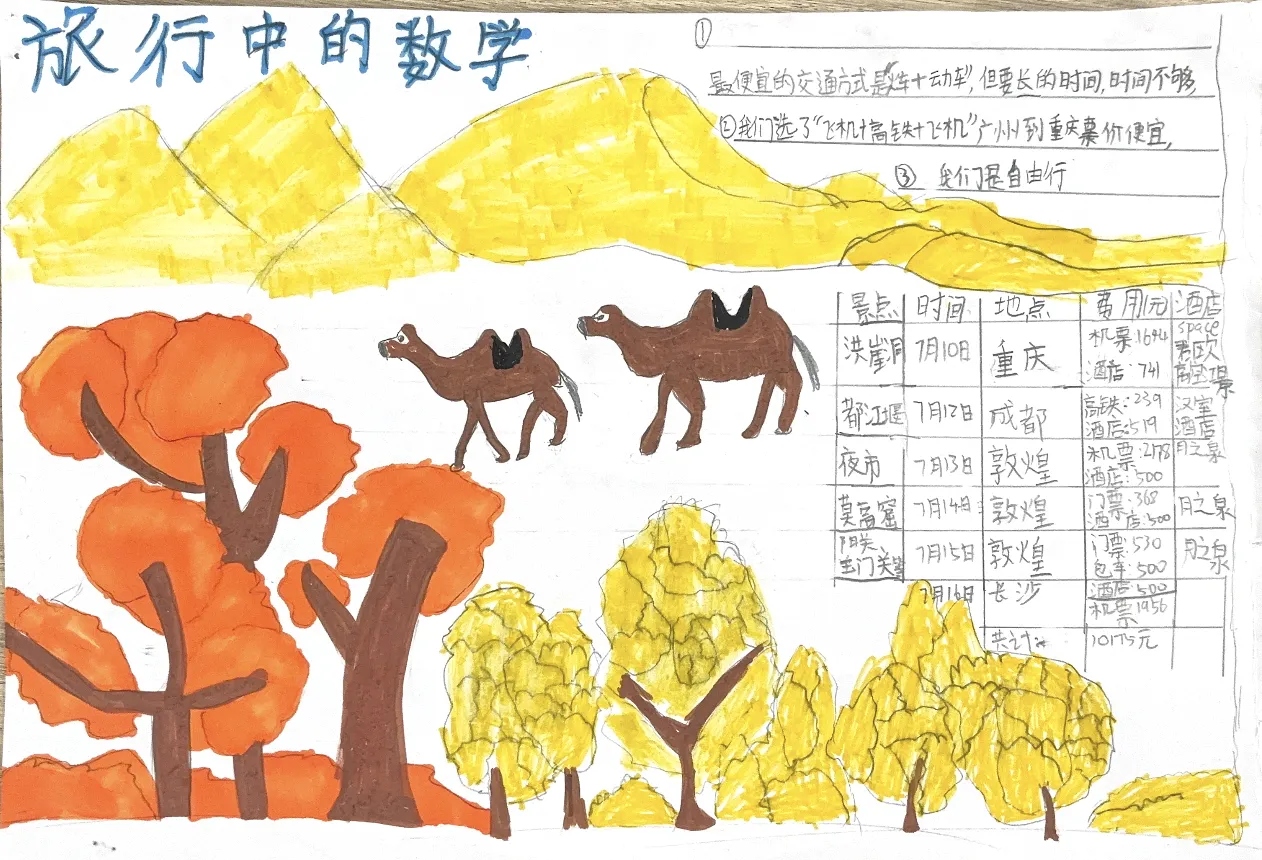 旅行中的数学
①
最便宜的交通方式是"火车+动车",但要长的时间,时间不够,
②我们选了"飞机+高铁+飞机"广州到重庆票价便宜,
③ 我们是自由行
景点 时间 地点 费用/元 酒店
洪崖洞 7月10日 重庆 机票:1694 酒店:741 space 君欧 高空江景
都江堰 7月12日 成都 高铁:239 酒店:519 汉室酒店
夜市 7月13日 敦煌 机票:2178 酒店:500 月之泉
莫高窟 7月14日 敦煌 门票:368 酒店:500 月之泉
阳关、玉门关 7月15日 敦煌 门票:530 包车:500 月之泉
酒店:500
7月16日 长沙 机票1956
共计: 10175元